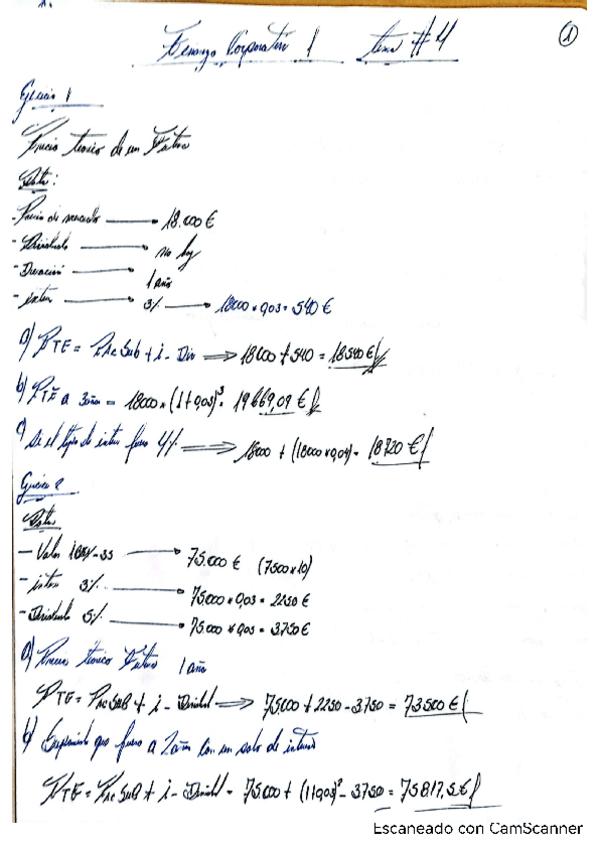 Finanzas Corporativa 1 tema #4 ①
Ejercicio 1
Precio teorico de un Futuro
Datos:
- Precio de mercado → 18.000 €
- Dividendo → no hay
- Duración → 1 año
- interes → 3% → 18000 x 0,03 = 540 €
a) PTF = PAcSub + i - Div ⇒ 18000 + 540 = 18540 €
b) PTF a 3 años = 18000 x (1+0,03)³ = 19669,09 €
c) Si el tipo de interes fuera 4% ⇒ 18000 + (18000 x 0,04) = 18720 €
Ejercicio 2
Datos
- Valor IBEX-35 → 75.000 € (7500 x 10)
- interes 3% → 75.000 x 0,03 = 2250 €
- Dividendo 5% → 75.000 x 0,05 = 3.750 €
a) Precio teorico Futuro 1 año
PTF = PAcSUB + i - Dividend ⇒ 75.000 + 2250 - 3750 = 73.500 €
b) Suponiendo que fuera a 2 años con un solo de interes
PTF = PAcSUB + i - Dividend = 75.000 + (1+0,03)² - 3750 = 75.817,5 €
Escaneado con CamScanner